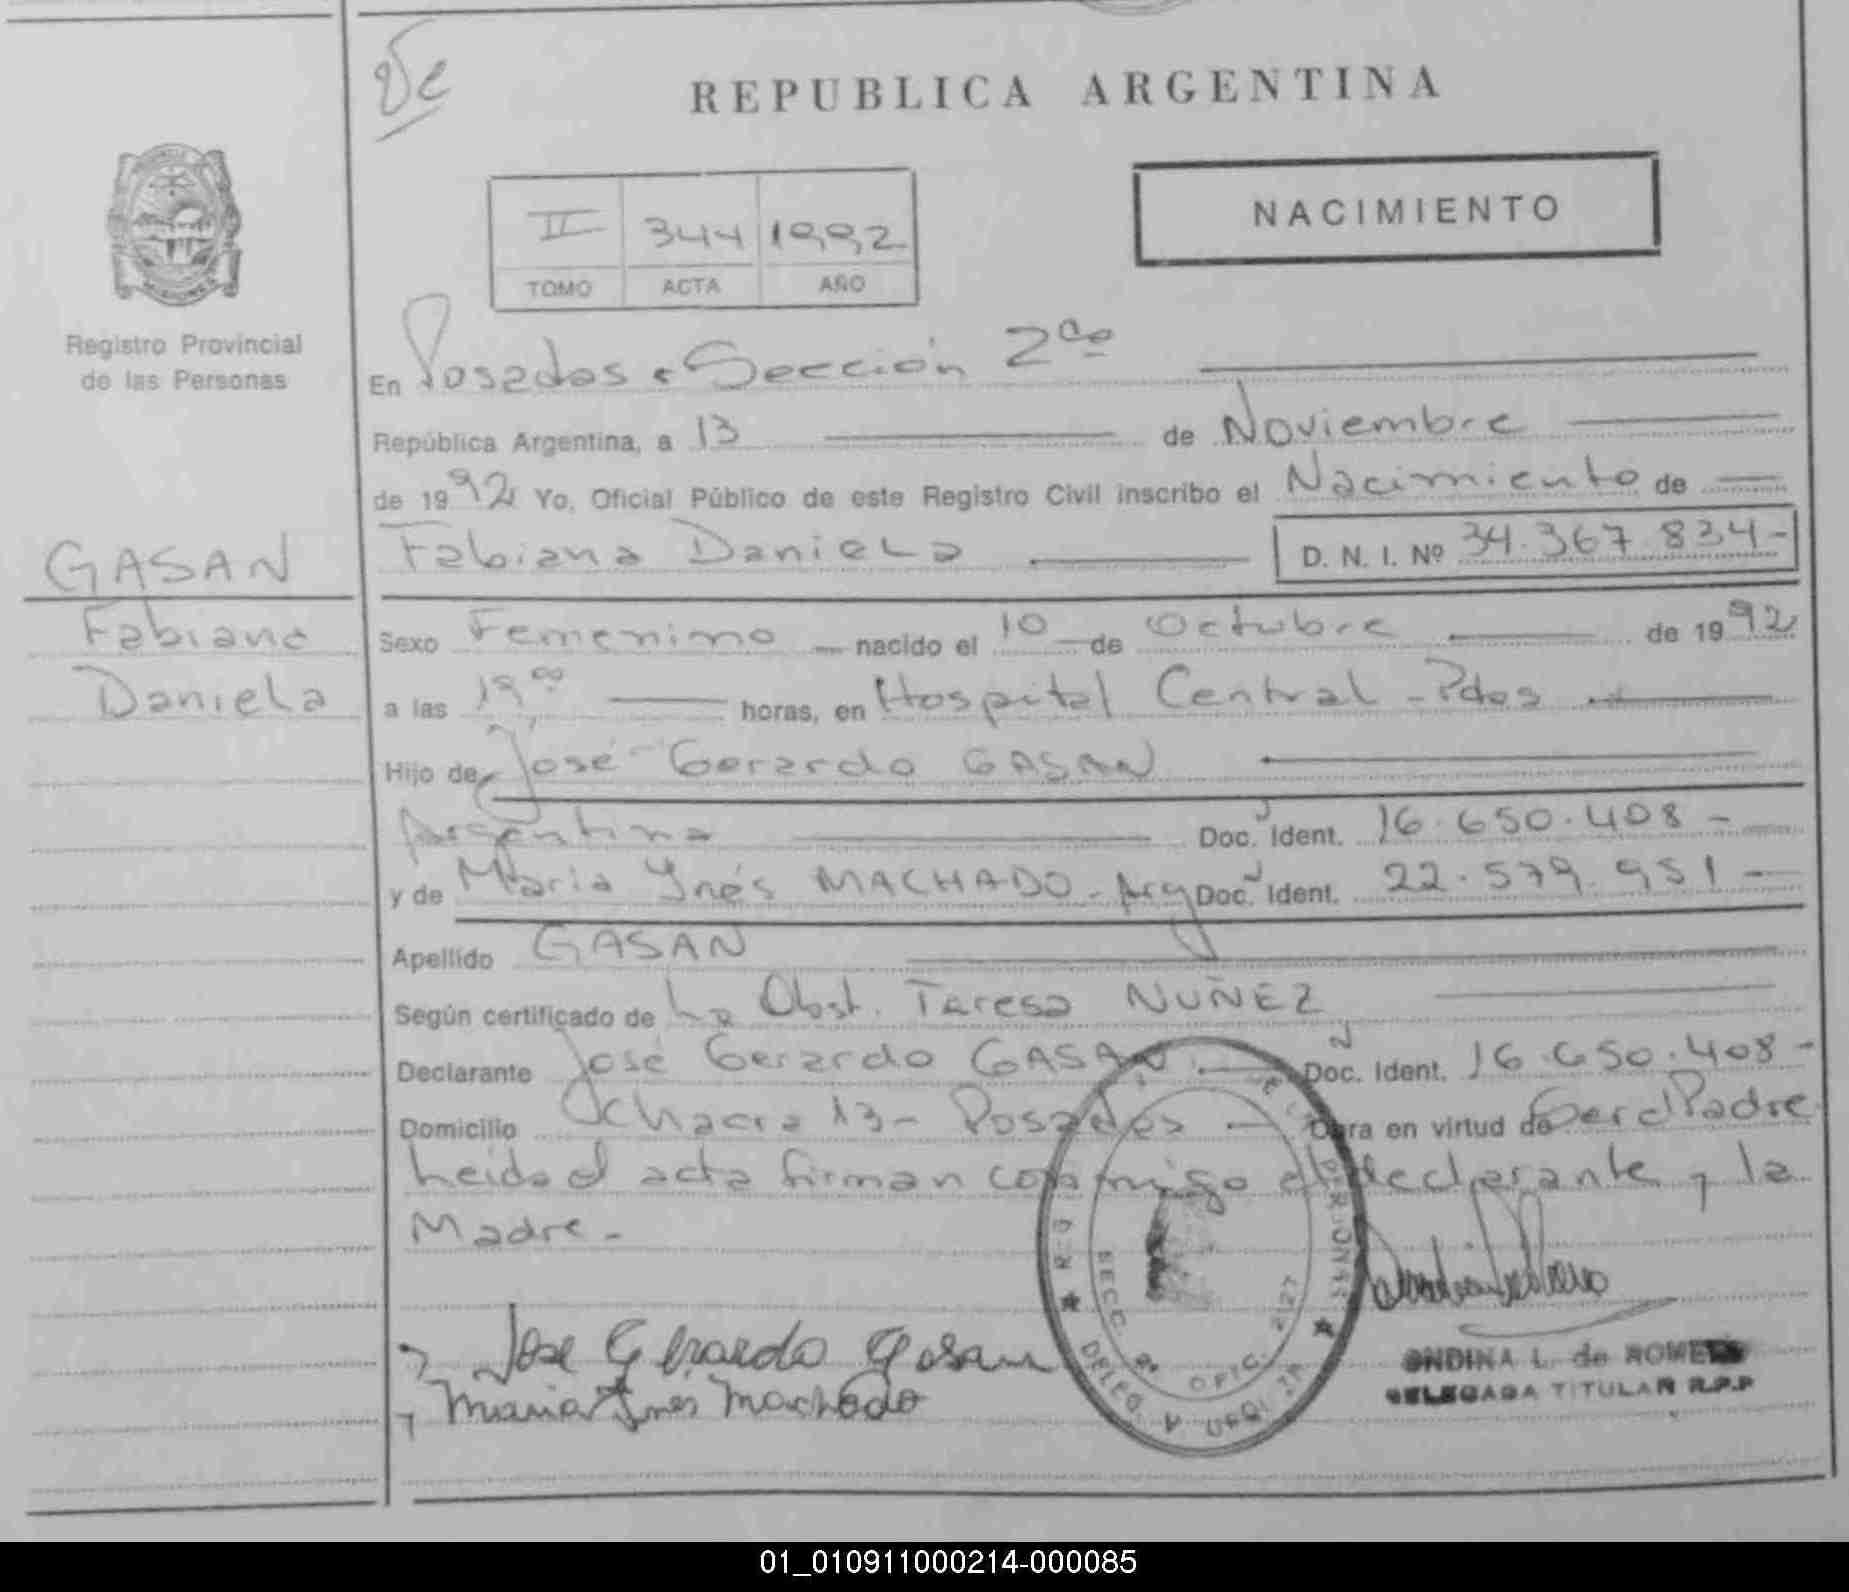 REPUBLICA ARGENTINA
NACIMIENTO
II 344 1992
TOMO ACTA AÑO
MISIONES
Registro Provincial
de las Personas
En Posadas - Sección 2da
República Argentina, a 13 de Noviembre
de 1992 Yo, Oficial Público de este Registro Civil inscribo el Nacimiento de
Fabiana Daniela D. N. I. Nº 34.367.834-
GASAN
Fabiana
Daniela
Sexo Femenino nacido el 10 de Octubre de 1992
a las 19 00 horas, en Hospital Central - Pdas
Hijo de José Gerardo GASAN
Argentina Doc. Ident. 16.650.408-
y de Maria Ynés MACHADO - Arg Doc. Ident. 22.579.951-
Apellido GASAN
Según certificado de La Obst. Teresa NUÑEZ
Declarante José Gerardo GASAN Doc. Ident. 16.650.408-
Domicilio Chacra 13 - Posadas - Obra en virtud de Ser el Padre
Leida el acta firman conmigo el declarante y la
Madre -
Jose Gerardo Gasan
Maria Ines Machado
SECC. 2a OFIC. 2127
ONDINA L. de ROMERO
DELEGADA TITULAR R.P.P
01_010911000214-000085